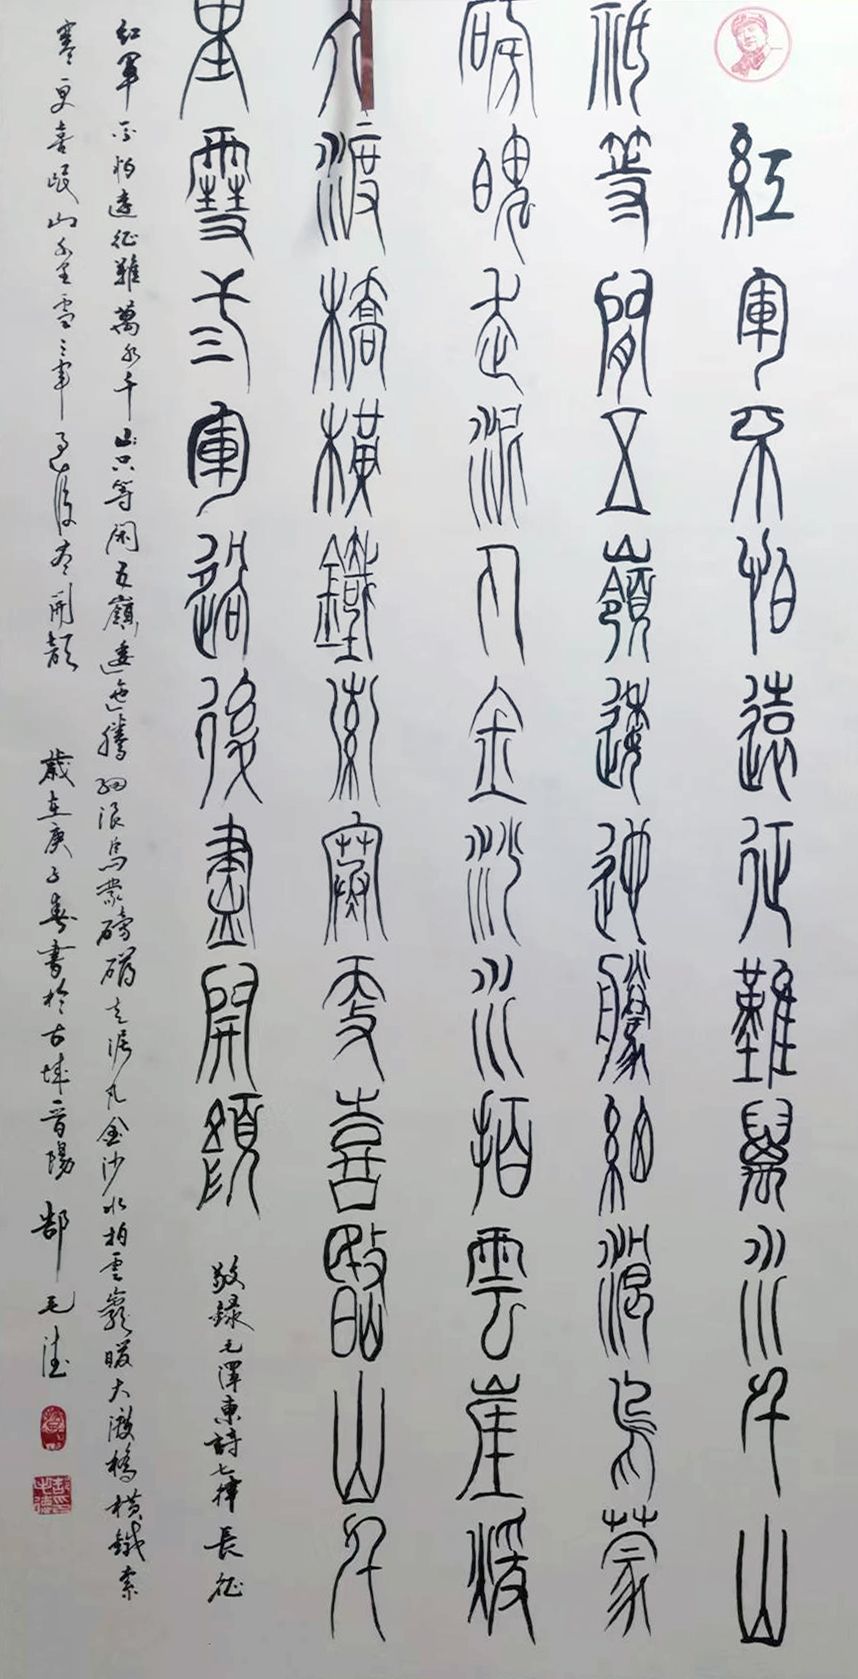 紅軍不怕遠征難萬水千山
祇等閒五嶺逶迤騰細浪烏蒙
磅魄走泥丸金沙水拍雲崖煖
大渡橋橫鐵索寒更喜岷山千
里雪弎軍過後盡開顏
敬錄毛澤東詩七律長征
紅軍不怕遠征難萬水千山只等閑五嶺逶迤騰細浪烏蒙磅礴走泥丸金沙水拍雲巖暖大渡橋橫鐵索
寒更喜岷山千里雪三軍過後盡開顏 歲在庚子春書於古城晉陽 郜毛德